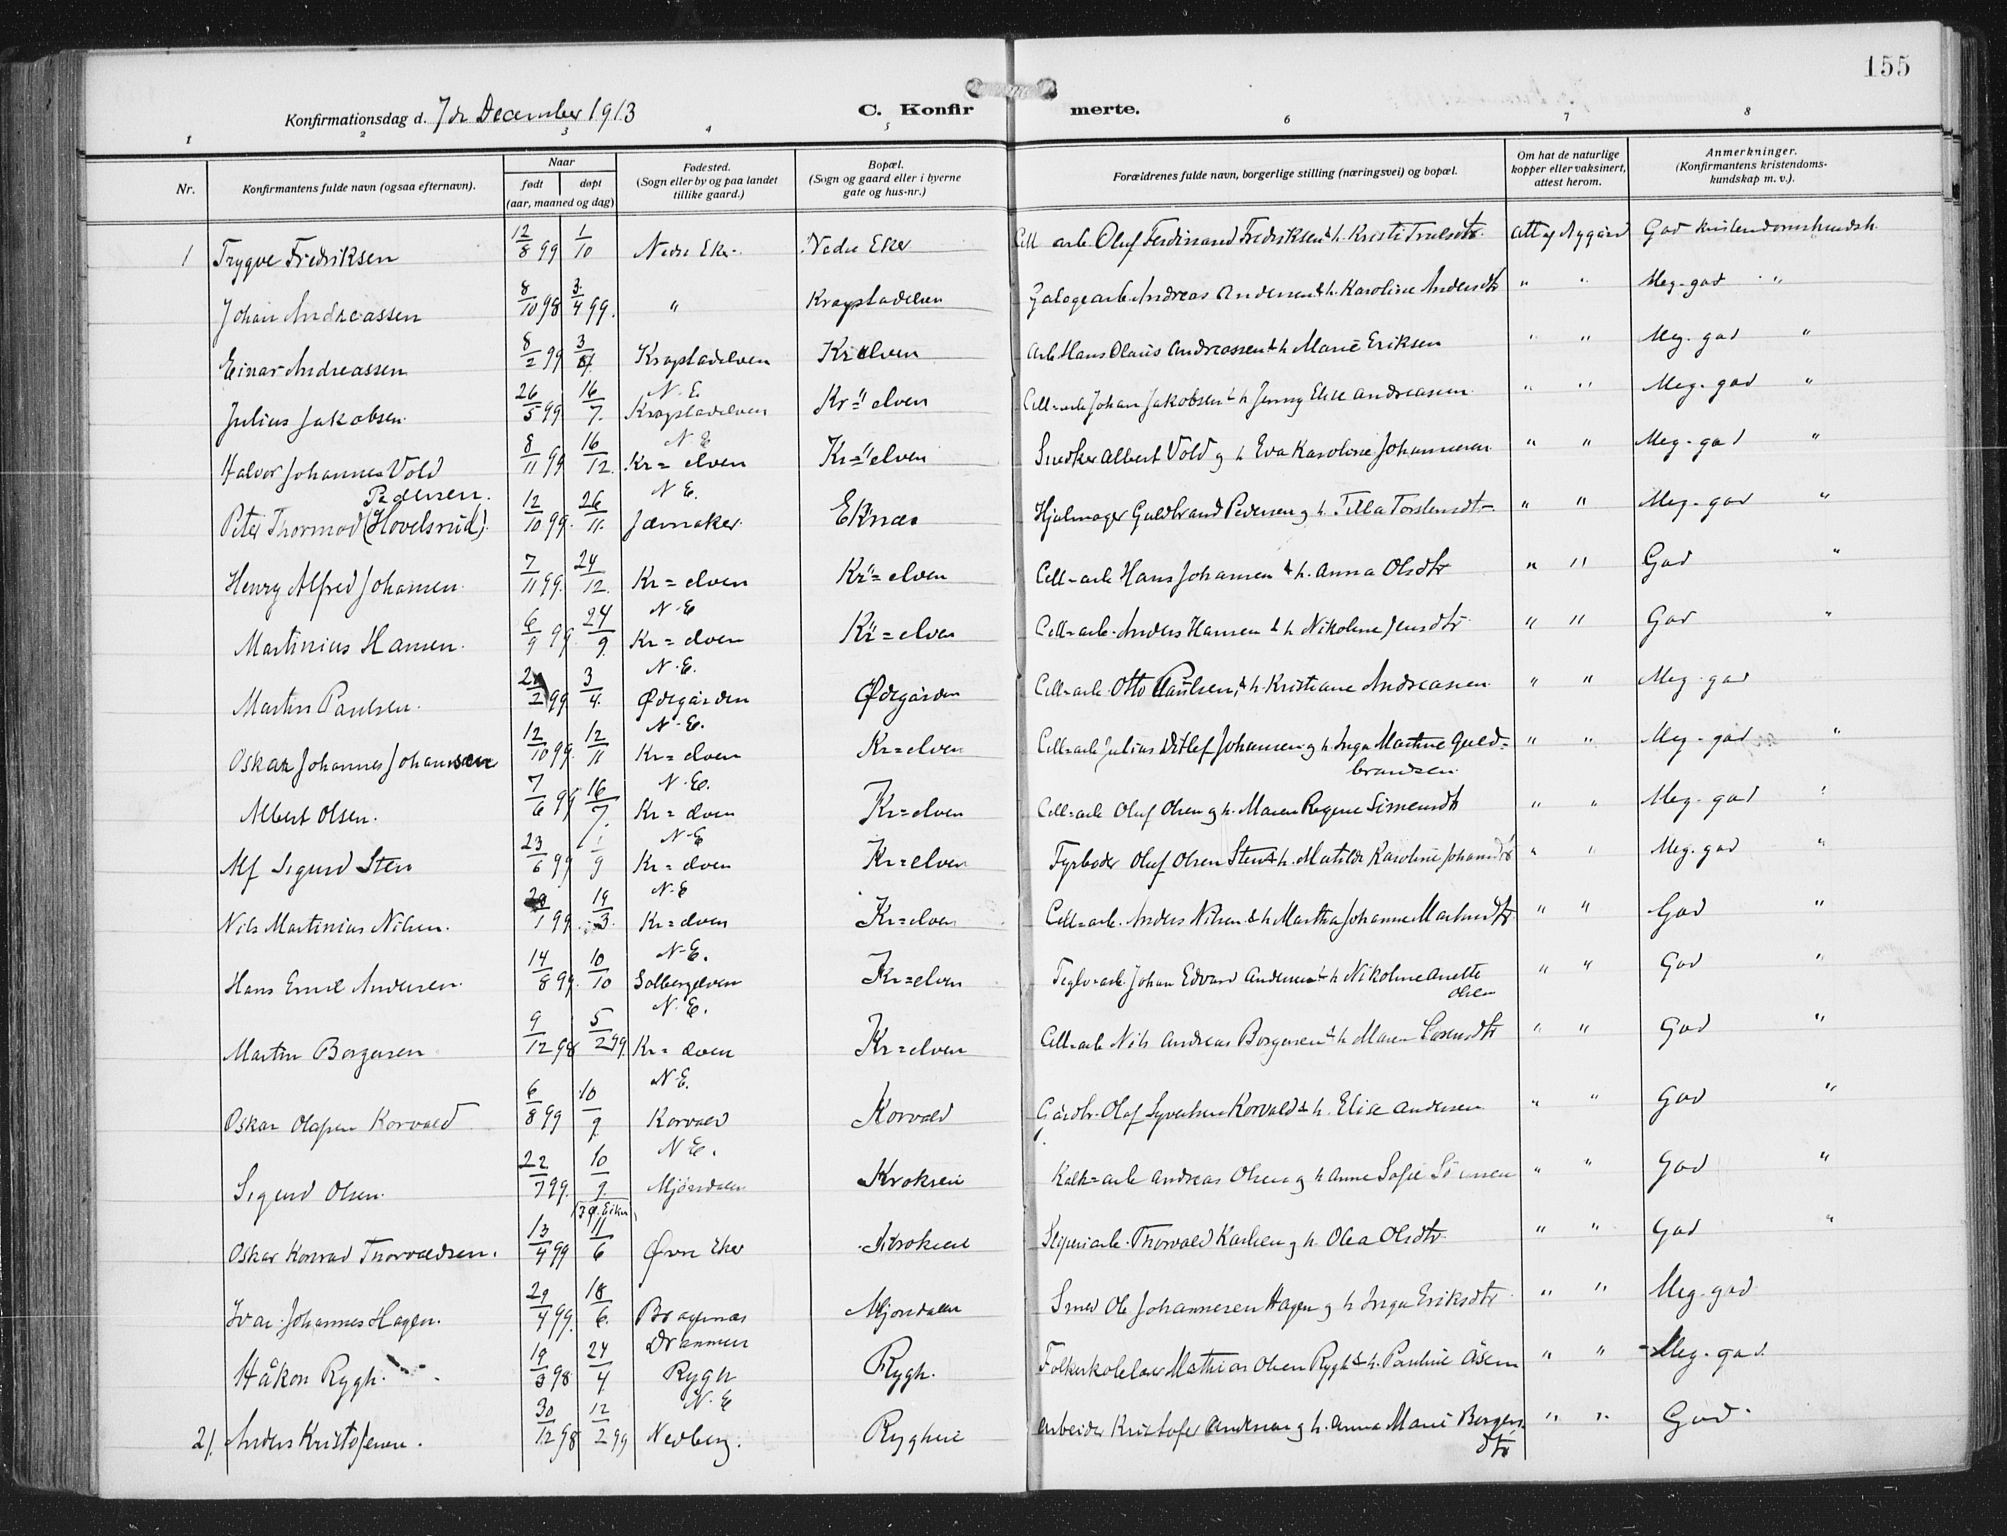 155
Konfirmationsdag d. 7de December 1913 C. Konfirmerte.
1 2 3 4 5 6 7 8
Nr. Konfirmantens fulde navn (ogsaa efternavn). Naar født døpt (aar, maaned og dag) Fødested. (Sogn eller by og paa landet tillike gaard.) Bopæl. (Sogn og gaard eller i byerne gate og hus-nr.) Forældrenes fulde navn, borgerlige stilling (næringsvei) og bopæl. Om hat de naturlige kopper eller vaksinert, attest herom. Anmerkninger. (Konfirmantens kristendoms-kundskap m. v.).
1 Trygve Fredriksen 12/8 99 1/10 Nedre Eker Nedre Eker Cell arb. Oluf Ferdinand Fredriksen & h. Kristi Trulsdtr. att af Nygård God kristendomskundsk.
Johan Andreassen 8/10 98 3/4 99. " Krogstadelven Andreas Andersen & h. Karoline Andersdtr " " Meg. god "
Einar Andreassen 8/2 99 3/4 Krogstadelven Kr elven Arb Hans Olaus Andreassen & h Marie Eriksen " " Meg. god "
N. E.
Julius Jakobsen 26/5 99 16/7. Krogstadelven Kr = elven Cell=arb Johan Jakobsen & h Jenny Elise Andreasen " " Meg. god "
N E
Halvor Johannes Vold 8/11 99 16/12 Kr = elven Kr = elven Snedker Albert Vold og h Eva Karoline Johannesen " " Meg. god "
Pedersen. N E.
Peter Thormod (Hovelsrud). 12/10 99. 26/11. Jevnaker Eknes Hjulmager Guldbrand Pedersen og h. Tilla Torstensdtr " " Meg. god "
Henry Alfred Johansen 7/11 99. 24/12. Kr = elven Kr = elven Cell=arb Hans Johansen & h. Anna Olsdtr " " God "
N E
Martinius Hansen. 6/9 99. 24/9. Kr = elven Kr = elven Cell=arb. Anders Hansen & h Nikoline Jensdtr " " God "
N. E.
Martin Paulsen. 2/2 99 3/4. Ødegården Ødegården Cell=arb. Otto Paulsen, & h. Kristiane Andreasen " " Meg. god
N. E.
Oskar Johannes Johansen 12/10 99. 12/11 Kr = elven Kr = elven Cell=arb Julius Ditlef Johansen og h. Inga Martine Guld= " " Meg. god "
brandsen.
N. E.
Albert Olsen. 7/6 99 16/7 Kr = elven Kr = elven Cell=arb Oluf Olsen og h. Maren Regine Simensdtr " " Meg. god "
N E
Alf Sigurd Sten 23/6 99 1/9 Kr = elven Kr = elven Fyrbøder Oluf Olsen Sten & h. Matilde Karoline Johansdtr " " Meg. god "
N E
Nils Martinius Nilsen. /1 99. 19/3. Kr = elven Kr = elven Cell=arb. Anders Nilsen & h Martha Johanne Martinsdtr " " God "
N E.
Hans Emil Andersen. 14/8 99. 10/10 Solbergelven Kr = elven Teglv=arb. Johan Edvard Andersen & h Nikoline Anette " " God "
Olsen
N. E.
Martin Borgersen 9/12 98 5/2 99. Kr = elven Kr = elven Cell=arb Nils Andreas Borgersen & h Maren Larensdtr " " God "
N. E.
Oskar Olafsen Korvald 6/8 99 10/9. Korvald Korvald Gårdbr. Olaf Syvertsen Korvald & h. Elise Andersen " " God "
N E.
Sigurd Olsen. 22/7 99. 10/9. Mjøndalen Krokseie Kalk=arb Andreas Olsen og h Anne Sofie " " God "
Oskar Konrad Thorvaldsen. 13/4 99 11/6 Øvre Eker Krokseie Sliperiarb. Thorvald Karlsen og h. Olea Olsdtr. " " God "
Ivar Johannes Hagen. 29/4 99. 18/6. Bragernæs Mjøndalen Smed Ole Johannesen Hagen og h Inga Eriksdtr " " Meg. god
Drammen
Håkon Rygh. 19/3 98 24/4 Rygh Rygh. Folkeskolelærer Mathias Olsen Rygh & h. Pauline Åsen " " Meg. god.
N. E
21. Anders Kristofersen. 30/12 98 12/2 99 Nedberg. Ryghseie Arbeider Kristofer Andersen og h. Anna Marie Borgers " " God.
dtr